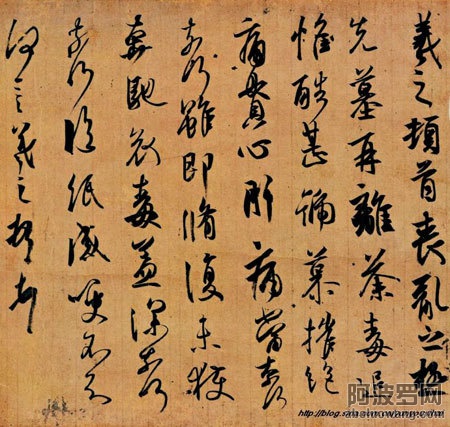 羲之頓首喪亂之極
先墓再離荼毒追
惟酷甚號慕摧絕
痛貫心肝痛當奈何
奈何雖即脩復未獲
奔馳哀毒益深奈何
奈何臨紙感哽不知
何言羲之頓首頓首
阿波罗网